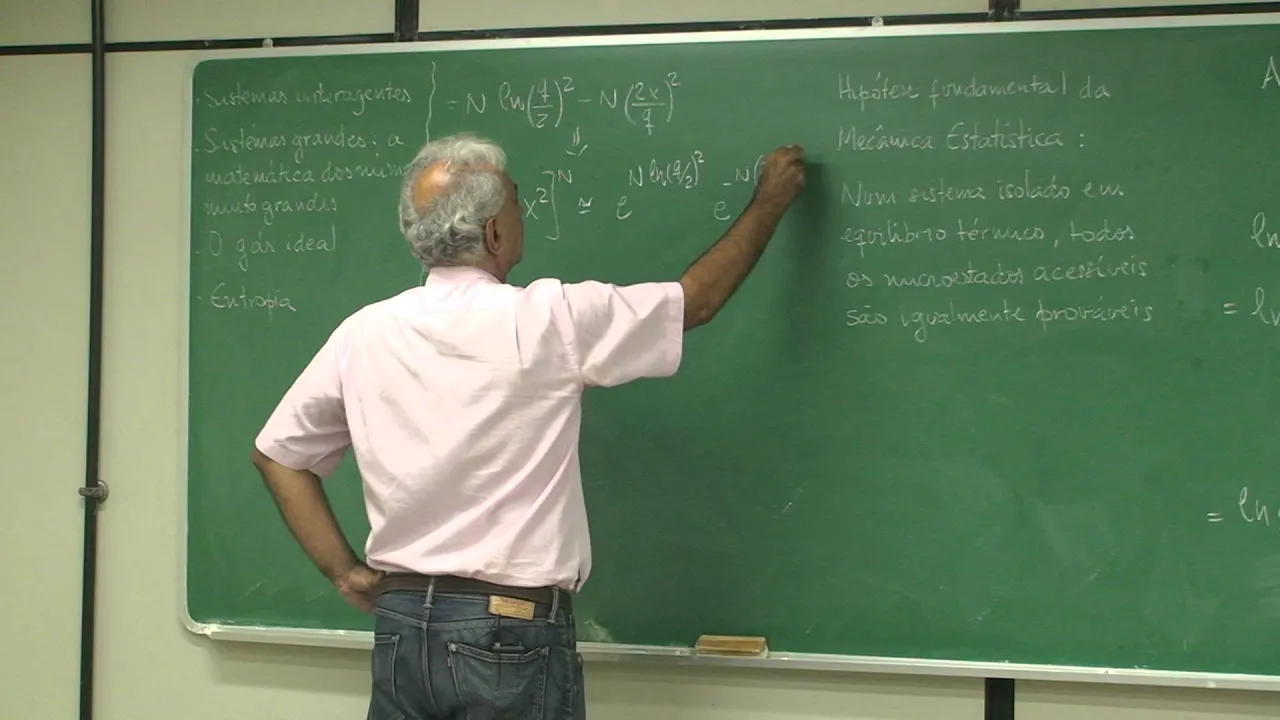 . Sistemas interagentes
. Sistemas grandes: a
matemática dos
muito grandes
. O gás ideal
. Entropia
= N ln(q/2)² - N(2x/q)²
⇓
x²]^N ≃ e^{N ln(q/2)²} e^{-N(
Hipótese fundamental da
Mecânica Estatística :
Num sistema isolado em
equilíbrio térmico, todos
os microestados acessíveis
são igualmente prováveis
A
ln
= ln
= ln